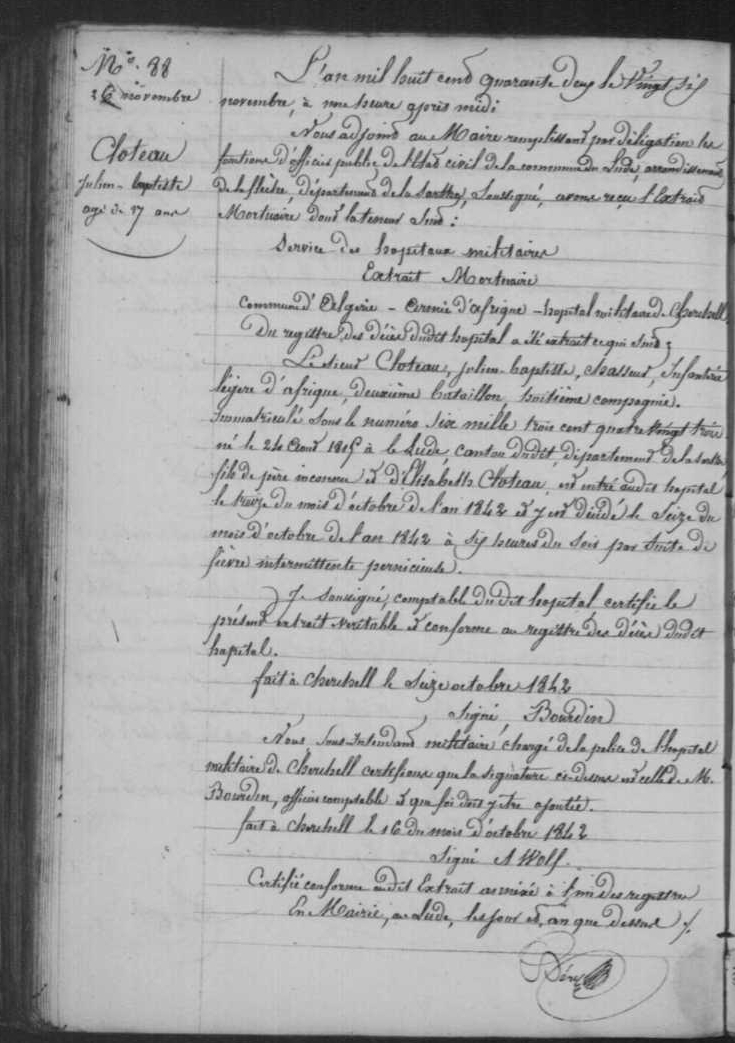 N.o 88
26 novembre
Cloteau
Julien-baptiste
agé de 27 ans
L'an mil huit cent quarante deux le Vingt six
novembre, à une heure après midi
Nous adjoint au Maire remplissant par délégation les
fontions d'officier public de l'état civil de la commune du Lude, arrondissement
de la flèche, département de la sarthe, soussigné, avons reçu l'Extrait
Mortuaire dont la teneur suit :
Service des hopitaux militaires
Extrait Mortuaire
d'Algerie - d'afrique - hopital militaire de Cherchell
Du registre des décès dudit hopital a été extrait ce qui suit ;
Le sieur Cloteau, julien-baptiste, chasseur, Infanterie
légère d'afrique, deuxième bataillon, huitième compagnie.
immatriculé sous le numéro six mille trois cent quatre vingt trois
né le 24 Aout 1815 à le Lude, canton dudit, département de la sarthe,
fils de père inconnu et d'Elisabeth Cloteau, est entré audit hopital
le treize du mois d'octobre de l'an 1842 et y est décédé le Seize du
mois d'octobre de l'an 1842 à six heures du soir par suite de
fièvre intermittente pernicieuse.
Je soussigné, comptable du dit hopital certifie le
présent extrait véritable et conforme au registre des décès dudit
hopital.
fait à cherchell le seize octobre 1842
signé, Bourdin
Nous, sous-Intendant militaire chargé de la police de l'hopital
militaire de Cherchell certifions que la signature ci-dessus est celle de M.
Bourdin, officier comptable et que foi doit y être ajoutée.
fait à cherchell le 16 du mois d'octobre 1842
Signé A Wolf.
Certifié conforme audit Extrait annexé à fin des registres
En Mairie, au Lude, les jour et an que dessus /.